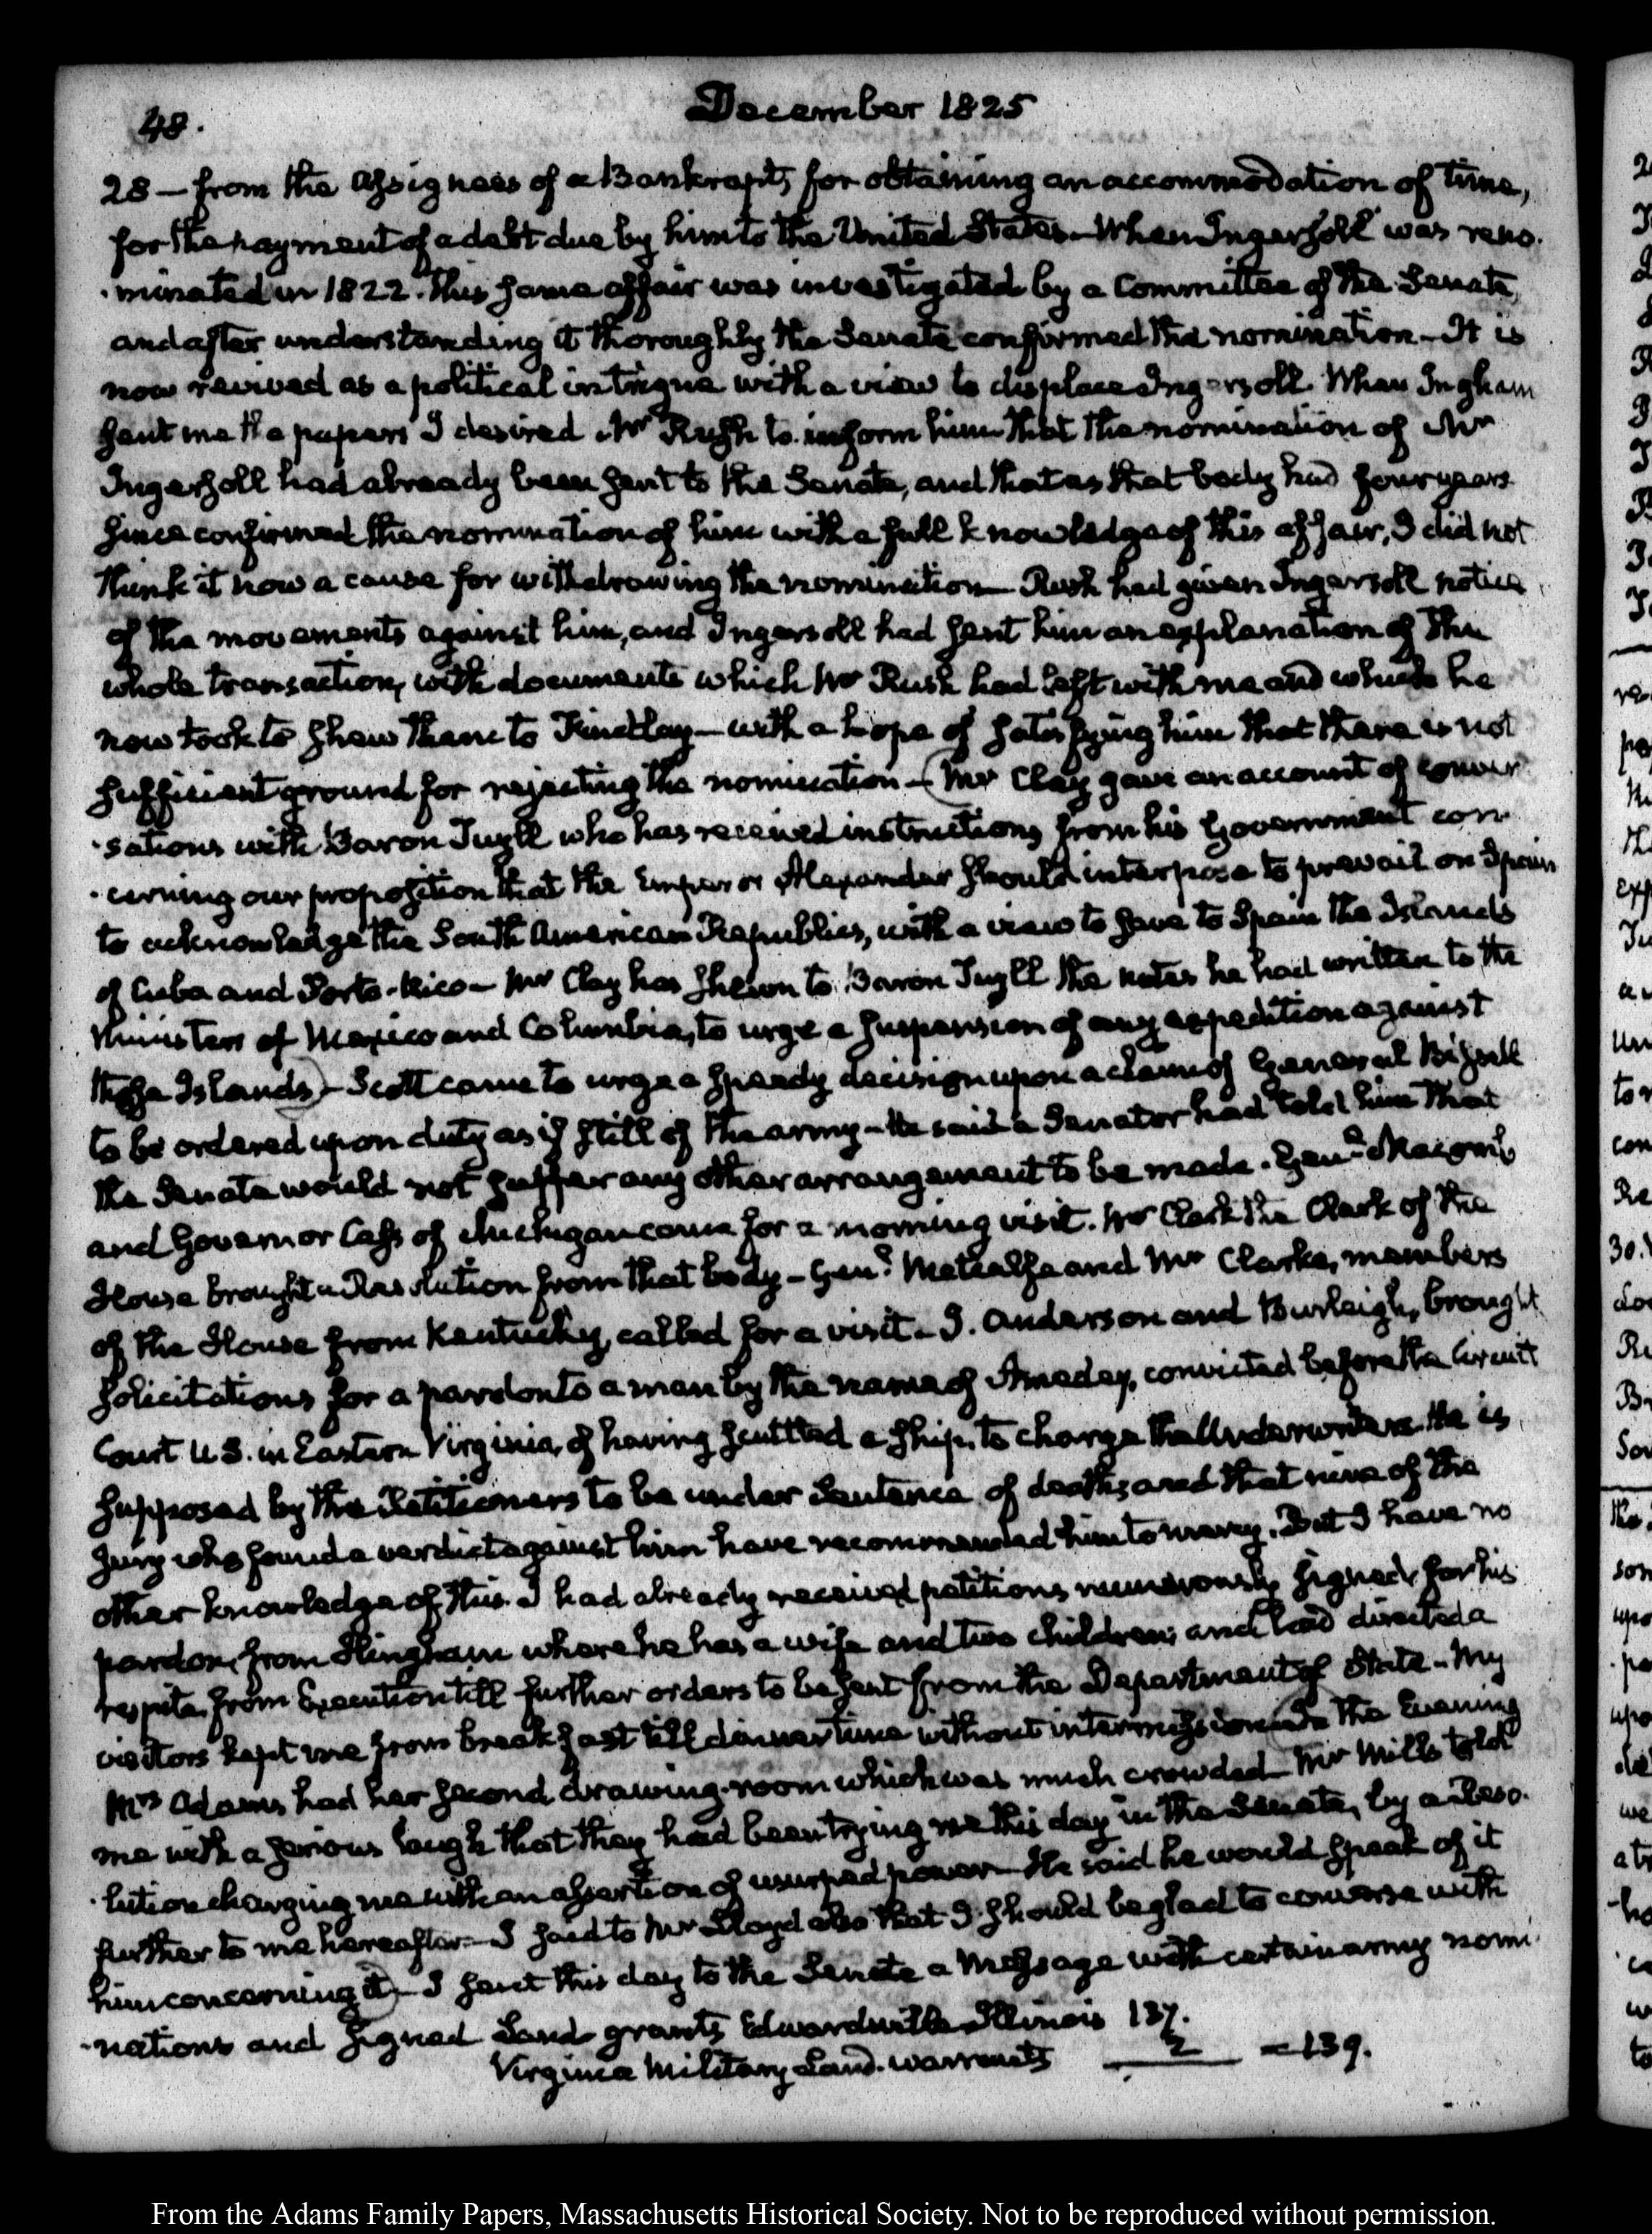 48.
December 1825
28 — from the Assignees of a Bankrupt, for obtaining an accommodation of time,
for the payment of a debt due by him to the United States. When Ingersoll was reno-
-minated in 1822. this same affair was investigated by a Committee of the Senate,
and after understanding it thoroughly the Senate confirmed the nomination — It is
now revived as a political intrigue with a view to displace Ingersoll. When Ingham
sent me the papers I desired Mr Rush to inform him that the nomination of Mr
Ingersoll had already been sent to the Senate, and that as that body had four years
since confirmed the nomination of him with a full knowledge of this affair, I did not
think it now a cause for withdrawing the nomination — Rush had given Ingersoll notice
of the movements against him, and Ingersoll had sent him an explanation of the
whole transaction, with documents which Mr Rush had left with me and which he
now took to shew them to Findlay — with a hope of satisfying him that there is not
sufficient ground for rejecting the nomination — (Mr Clay gave an account of conver-
-sations with Baron Tuyll who has received instructions from his Government con-
-cerning our proposition that the Emperor Alexander should interpose to prevail on Spain
to acknowledge the South American Republics, with a view to save to Spain the Islands
of Cuba and Porto-Rico — Mr Clay has shewn to Baron Tuyll the notes he had written to the
Ministers of Mexico and Columbia, to urge a suspension of any expedition against
those Islands) — Scott came to urge a speedy decision upon a claim of General Bissell
to be ordered upon duty as if still of the army — He said a Senator had told him that
the Senate would not suffer any other arrangement to be made. Genl. Macomb
and Governor Cass of Michigan came for a morning visit. Mr Clark the Clerk of the
House brought a Resolution from that body — Genl. Metcalfe and Mr Clarke, members
of the House from Kentucky, called for a visit — J. Anderson and Burleigh, brought
solicitations for a pardon to a man by the name of Ameday, convicted before the Circuit
Court U.S. in Eastern Virginia, of having scuttled a ship, to charge the Underwriters. He is
supposed by the Petitioners to be under Sentence of death, and that nine of the
Jury who found a verdict against him have recommended him to mercy. But I have no
other knowledge of this. I had already received petitions numerously signed, for his
pardon, from Hingham where he has a wife and two children; and had directed a
respite from Execution till further orders to be sent from the Department of State — My
visitors kept me from breakfast till dinner time without intermission (In the Evening
Mrs Adams had her second drawing-room which was much crowded — Mr Mills told
me with a serious laugh that they had been trying me this day in the Senate, by a Reso-
-lution charging me with an assertion of usurped power — He said he would speak of it
further to me hereafter — I said to Mr Lloyd also that I should be glad to converse with
him concerning it) — I sent this day to the Senate a Message with certain army nomi-
-nations and signed Land grants Edwardsville Illinois 137.
Virginia Military Land. warrants 2 = 139.
From the Adams Family Papers, Massachusetts Historical Society. Not to be reproduced without permission.